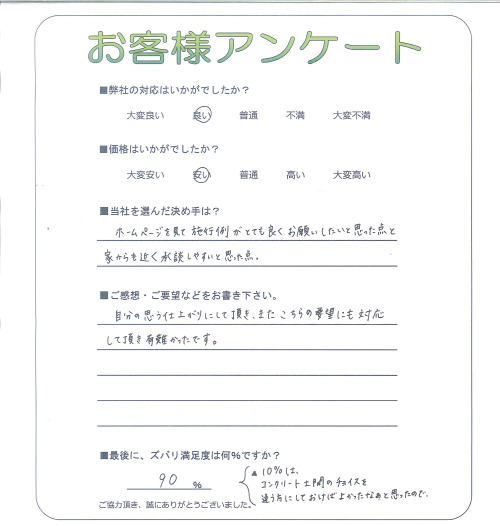 お客様アンケート
■弊社の対応はいかがでしたか？
大変良い 良い 普通 不満 大変不満
■価格はいかがでしたか？
大変安い 安い 普通 高い 大変高い
■当社を選んだ決め手は？
ホームページを見て施行例がとても良くお願いしたいと思った点と
家からも近く相談しやすいと思った点。
■ご感想・ご要望などをお書き下さい。
自分の思う仕上がりにして頂き、また こちらの要望にも対応
して頂き有難かったです。
■最後に、ズバリ満足度は何%ですか？
90 %
▲10%は、
コンクリート土間のチョイスを
違う方にしておけばよかったなぁと思ったので。
ご協力頂き、誠にありがとうございました。